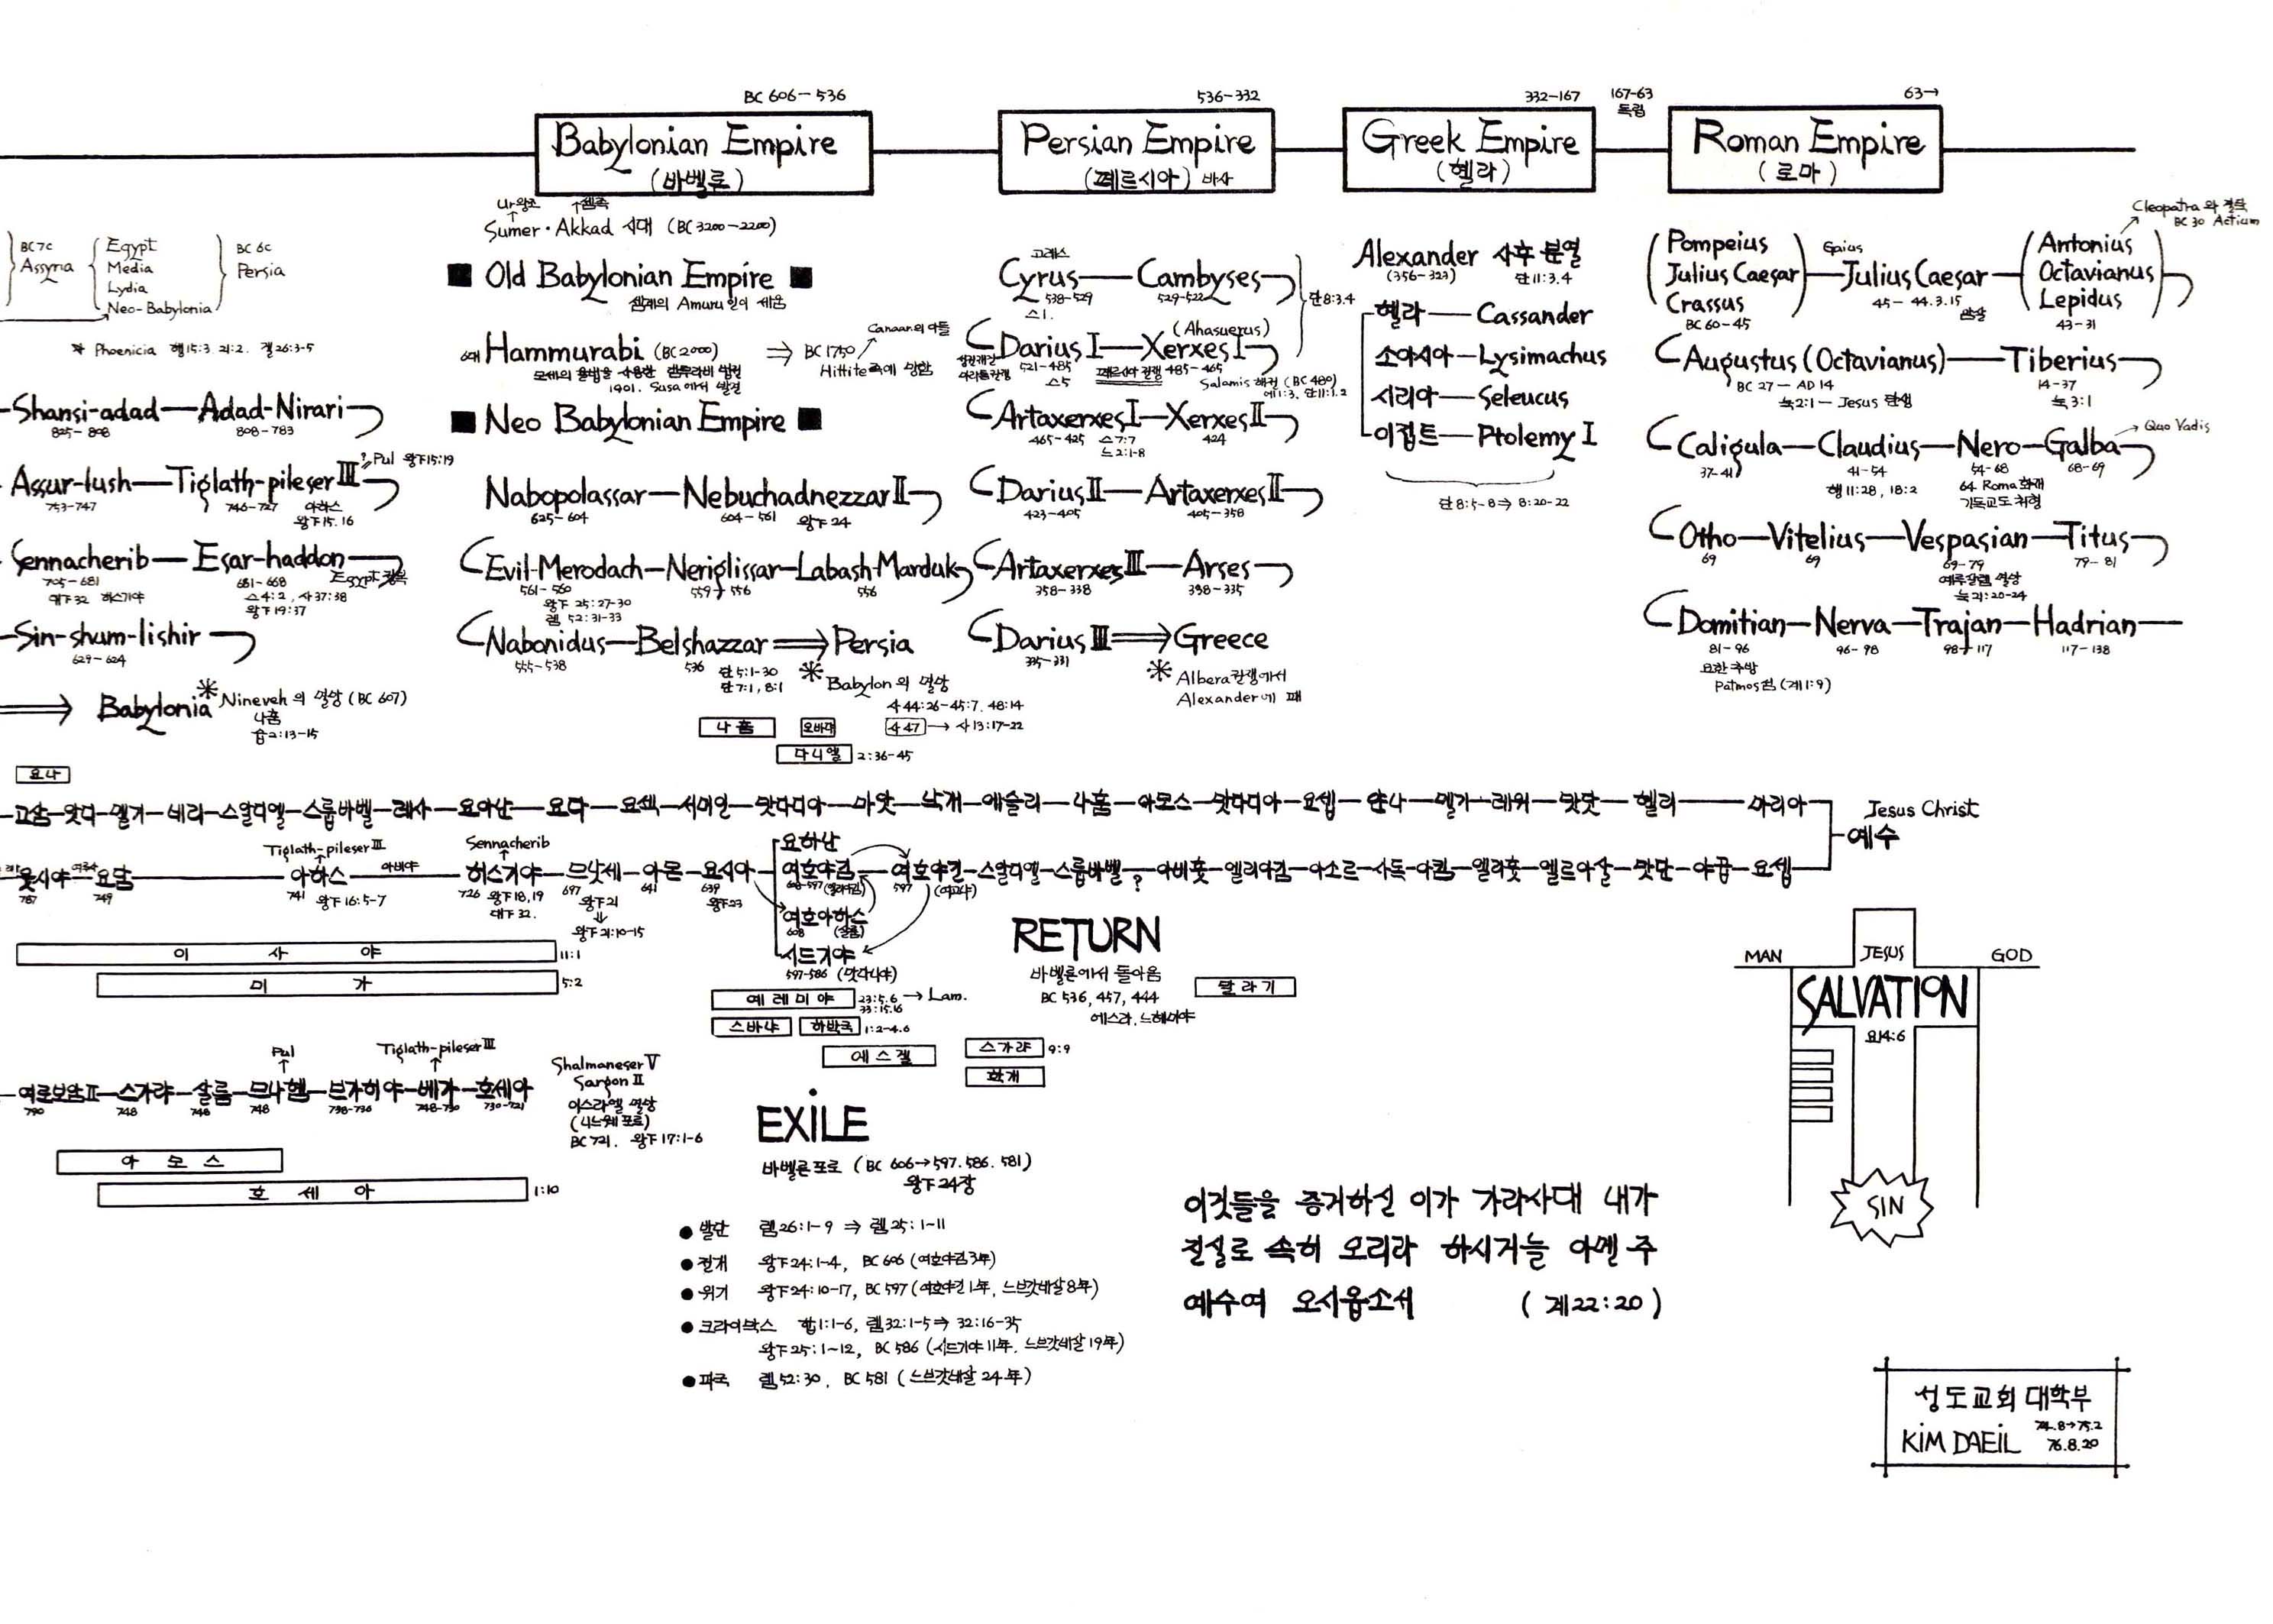 BC 606-536
Babylonian Empire
(바벨론)
536-332
Persian Empire
(페르시아) 바사
332-167
Greek Empire
(헬라)
167-63
독립
63→
Roman Empire
(로마)
BC 7C
Assyria
Egypt
Media
Lydia
Neo-Babylonia
BC 6C
Persia
* Phoenicia 행15:3. 21:2. 겔26:3-5
Shansi-adad—Adad-Nirari
825-808
808-783
?Pul 왕下15:19
Assur-lush—Tiglath-pileser III
753-747
746-727 아하스
왕下15.16
Sennacherib—Esar-haddon
705-681
대下32 히스기야
681-668
스4:2, 사37:38
왕下19:37
Egypt 정복
Sin-shum-lishir
629-624
⇒ Babylonia
* Nineveh의 멸망 (BC 607)
나훔
습2:13-15
Ur왕조
↑셈족
Sumer·Akkad 시대 (BC 3200-2200)
■ Old Babylonian Empire ■
셈계의 Amuru인이 세움
6대 Hammurabi (BC 2000) ⇒ BC 1750
Canaan의 아들
Hittite족에 망함
모세의 율법을 사용한 함무라비 법전
1901. Susa에서 발견
■ Neo Babylonian Empire ■
Nabopolassar—Nebuchadnezzar II
625-604
604-561 왕下24
Evil-Merodach—Neriglissar—Labash-Marduk
561-560
왕下 25:27-30
렘 52:31-33
559-556
556
Nabonidus—Belshazzar⇒Persia
555-538
536 단5:1-30
단7:1, 8:1
* Babylon의 멸망
사44:26-45:7. 48:14
사47 → 사13:17-22
고레스
Cyrus—Cambyses
538-529
스1.
529-522
단8:3.4
(Ahasuerus)
Darius I—Xerxes I
성전재건
마라톤전쟁
521-485
스5
페르시아 전쟁 485-465
Salamis 해전 (BC 480)
에1:3, 단11:1.2
Artaxerxes I—Xerxes II
465-425 스7:7
느2:1-8
424
Darius II—Artaxerxes II
423-405
405-358
Artaxerxes III—Arses
358-338
398-335
Darius III⇒Greece
335-331
* Albera전쟁에서
Alexander에 패
Alexander 사후 분열
(356-323)
단11:3.4
헬라—Cassander
소아시아—Lysimachus
시리아—Seleucus
이집트—Ptolemy I
단8:5-8⇒8:20-22
Cleopatra와 결탁
BC 30 Actium
Pompeius
Julius Caesar
Crassus
BC 60-45
Gaius
Julius Caesar
45-44.3.15
암살
Antonius
Octavianus
Lepidus
43-31
Augustus (Octavianus)—Tiberius
BC 27-AD 14
눅2:1-Jesus 탄생
14-37
눅3:1
Caligula—Claudius—Nero—Galba
→Quo Vadis
37-41
41-54
행11:28, 18:2
54-68
64 Roma화재
기독교도 처형
68-69
Otho—Vitelius—Vespasian—Titus
69
69
69-79
예루살렘 멸망
눅21:20-24
79-81
Domitian—Nerva—Trajan—Hadrian
81-96
요한 추방
Patmos섬 (계1:9)
96-98
98-117
117-138
나훔
오바댜
다니엘 2:36-45
요나
고삼—앗디—멜기—네리—스알디엘—스룹바벨—레사—요아난—요다—요섹—서머인—맛다디아—마앗—낙개—에슬리—나훔—아모스—맛다디아—요셉—얀나—멜기—레위—맛닷—헬리—마리아
Jesus Christ
예수
웃시야—요담—아하스—히스기야—므낫세—아몬—요시아
787
749
Tiglath-pileser III
741 왕下16:5-7
아비야
Sennacherib
726 왕下18,19
대下32.
697
왕下21
⇓
왕下21:10-15
641
639
왕下23
요하난
여호야김—여호야긴—스알디엘—스룹바벨?—아비훗—엘리아김—아소르—사독—아킴—엘리웃—엘르아살—맛단—야곱—요셉
608-597 (엘리아김)
597 (여고냐)
여호아하스
608 (살룸)
시드기야
597-586 (맛다니야)
이사야 11:1
미가 5:2
예레미야 23:5.6 → Lam.
33:15.16
스바냐
하박국 1:2-4.6
에스겔
스가랴 9:9
학개
말라기
RETURN
바벨론에서 돌아옴
BC 536, 457, 444
에스라, 느헤미야
Pul
Tiglath-pileser III
여로보암II—스가랴—살룸—므나헴—브가히야—베가—호세아
790
748
748
748
738-736
748-730
730-721
Shalmaneser V
Sargon II
이스라엘 멸망
(니느웨 포로)
BC 721. 왕下17:1-6
아모스
호세아 1:10
EXILE
바벨론포로 (BC 606→597.586.581)
왕下24장
● 발단 렘26:1-9 ⇒ 렘25:1-11
● 전개 왕下24:1-4, BC 606 (여호야김3年)
● 위기 왕下24:10-17, BC 597 (여호야긴1年, 느브갓네살8年)
● 크라이막스 합1:1-6, 렘32:1-5⇒32:16-35
왕下25:1-12, BC 586 (시드기야11年, 느브갓네살19年)
● 파국 렘52:30, BC 581 (느브갓네살24年)
MAN
JESUS
GOD
SALVATION
요14:6
SIN
이것들을 증거하신 이가 가라사대 내가
진실로 속히 오리라 하시거늘 아멘 주
예수여 오시옵소서 (계22:20)
성도교회 대학부
KIM DAEIL 74.8→75.2
76.8.20